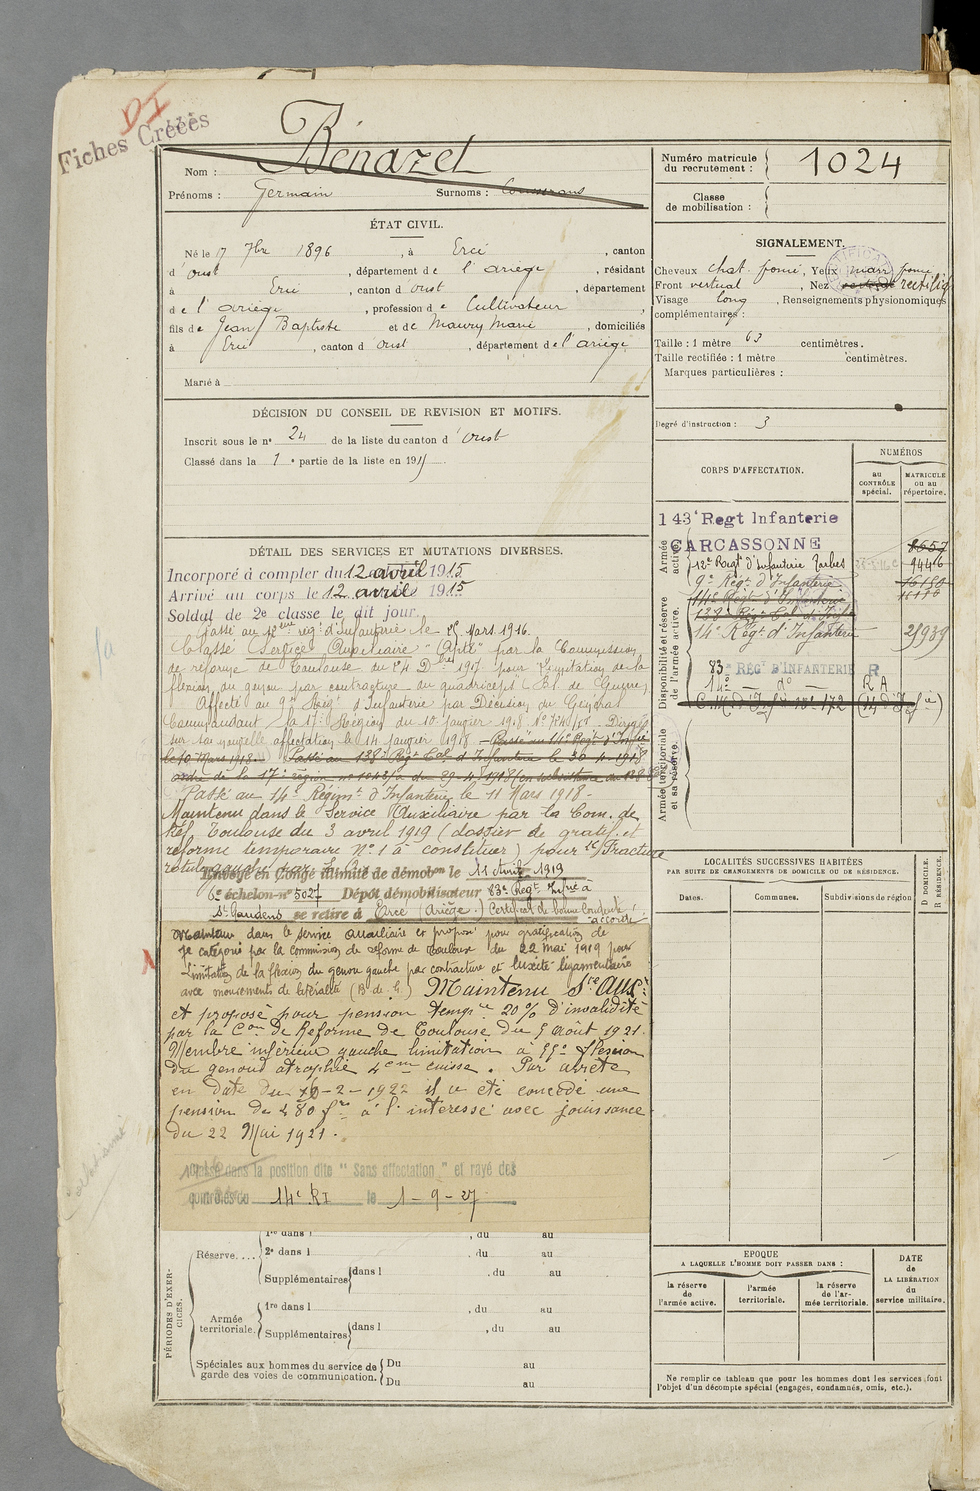 DI
Fiches Créées
Nom : Bénazet
Prénoms : Germain Surnoms :
ÉTAT CIVIL.
Né le 17 7bre 1896, à Ercé, canton
d'Oust, département de l'ariège, résidant
à Ercé, canton d'oust, département
de l'ariège, profession de Cultivateur,
fils de Jean Baptiste et de Maury Marie, domiciliés
à Ercé, canton d'oust, département de l'ariège
Marié à
DÉCISION DU CONSEIL DE REVISION ET MOTIFS.
Inscrit sous le n° 24 de la liste du canton d'oust
Classé dans la 1e partie de la liste en 1915
DÉTAIL DES SERVICES ET MUTATIONS DIVERSES.
Incorporé à compter du 12 avril 1915
Arrivé au corps le 12 avril 1915
Soldat de 2e classe le dit jour.
Passé au 12eme rég. d'infanterie le 25 Mars 1916.
Classé Service Auxiliaire "Apte" par la Commission
de réforme de Toulouse du 24 Dbre 1917 pour "Limitation de la
flexion du genou par contracture du quadriceps" (Bl. de Guerre)
Affecté au 9e Régt d'Infanterie par Décision du Général
Commandant la 17e Région du 10 janvier 1918 Dirigé
sur sa nouvelle affectation le 14 janvier 1918 - Passé au 14e Régt d'Infrie
le 10 Mars 1918. Passé au 138e Régt Cal d'Infanterie le 30-4-1918
ordre de la 17e région no 1043/a du 29-4-1918 (en subsistance au 138
Passé au 14e Régimt d'Infanterie le 11 Mars 1918 -
Maintenu dans le Service Auxiliaire par la Com. de
Réf. Toulouse du 3 avril 1919 (dossier de gratif. et
réforme temporaire No 1 à constituer) pour "Fracture
rotule gauche
Envoyé en Congé illimité de démobon le 11 Avril 1919
6e échelon no 5027 Dépôt démobilisateur 83e Regt Infie à
St Gaudens se retire à Ercé (Ariège.) Certificat de bonne Conduite :
"accordé"
Maintenu dans le service auxiliaire et proposé pour gratification de
par la commission de réforme de Toulouse du 22 mai 1919 pour
Limitation de la flexion du genou gauche par contracture et laxité ligamentaire
avec mouvements de latéralité (B. de G.) Maintenu Sce Auxe
et proposé pour pension tempre 20% d'invalidité
par la Con de Réforme de Toulouse du 5 Août 1921.
Membre inférieur gauche limitation à 55° flexion
du genou atrophie 4cm cuisse. Par arrêté
en date du -2-1922 il a été concédé une
pension de 480 frs à l'intéressé avec jouissance
du 22 Mai 1921.
Classé dans la position dite "Sans affectation" et rayé des
contrôles du 14e RI le 1-9-27
PÉRIODES D'EXER-
CICES.
Réserve....
1re dans l , du au
2e dans l , du au
Supplémentaires dans l , du au
Armée
territoriale.
1re dans l , du au
Supplémentaires dans l , du au
Spéciales aux hommes du service de
garde des voies de communication.
Du au
Du au
Numéro matricule
du recrutement : 1024
Classe
de mobilisation :
SIGNALEMENT.
Cheveux chat. foncé, Yeux marr foncé
Front vertical, Nez rectilig
Visage long, Renseignements physionomiques
complémentaires :
Taille : 1 mètre 63 centimètres.
Taille rectifiée : 1 mètre centimètres.
Marques particulières :
Degré d'instruction : 3
CORPS D'AFFECTATION.
NUMÉROS
au
CONTRÔLE
spécial.
MATRICULE
ou au
répertoire.
Armée
active.
143e Regt Infanterie
CARCASSONNE
8657
12e Regt d'Infanterie Tarbes 9446
9e Régt d'Infanterie 16150
Disponibilité et réserve
de l'armée active.
14e Régt d'Infanterie
138e Régt Cal d'Infie
14e Régt d'Infanterie 25939
83e REGT D'INFANTERIE R
14e do RA
C.M. d'Infie no 172 (14e d'Infie)
Armée territoriale
et sa réserve.
LOCALITÉS SUCCESSIVES HABITÉES
PAR SUITE DE CHANGEMENTS DE DOMICILE OU DE RÉSIDENCE.
D DOMICILE.
R RÉSIDENCE.
Dates.
Communes.
Subdivisions de région
EPOQUE
A LAQUELLE L'HOMME DOIT PASSER DANS :
la réserve
de
l'armée active.
l'armée
territoriale.
la réserve
de l'ar-
mée territoriale.
DATE
de
LA LIBÉRATION
du
service militaire.
Ne remplir ce tableau que pour les hommes dont les services font
l'objet d'un décompte spécial (engagés, condamnés, omis, etc.).